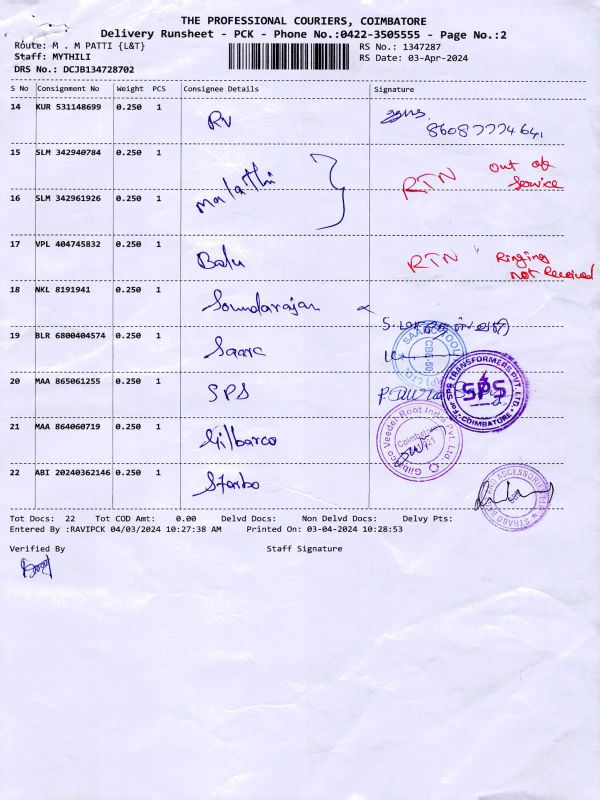 THE PROFESSIONAL COURIERS, COIMBATORE
Delivery Runsheet - PCK - Phone No.:0422-3505555 - Page No.:2
Route: M . M PATTI {L&T}
RS No.: 1347287
Staff: MYTHILI
RS Date: 03-Apr-2024
DRS No.: DCJB134728702
S No Consignment No Weight PCS Consignee Details Signature
14 KUR 531148699 0.250 1 RV
8608777464
15 SLM 342940784 0.250 1 RTN out of Service
16 SLM 342961926 0.250 1 Malathi
17 VPL 404745832 0.250 1 Balu RTN Ringing not Received
18 NKL 8191941 0.250 1 Soundarajan
19 BLR 6800404574 0.250 1 Saarc
20 MAA 865061255 0.250 1 SPS
For SPS TRANSFORMERS PVT. LTD. SPS COIMBATORE
21 MAA 864060719 0.250 1 Gilbarco
Gilbarco Veeder-Root India Pvt. Ltd
22 ABI 20240362146 0.250 1
Tot Docs: 22 Tot COD Amt: 0.00 Delvd Docs: Non Delvd Docs: Delvy Pts:
Entered By :RAVIPCK 04/03/2024 10:27:38 AM Printed On: 03-04-2024 10:28:53
Verified By Staff Signature